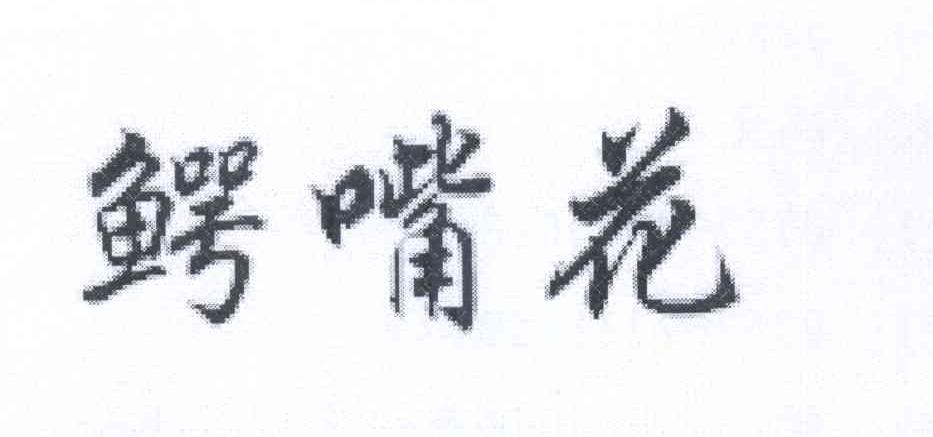 鳄嘴花